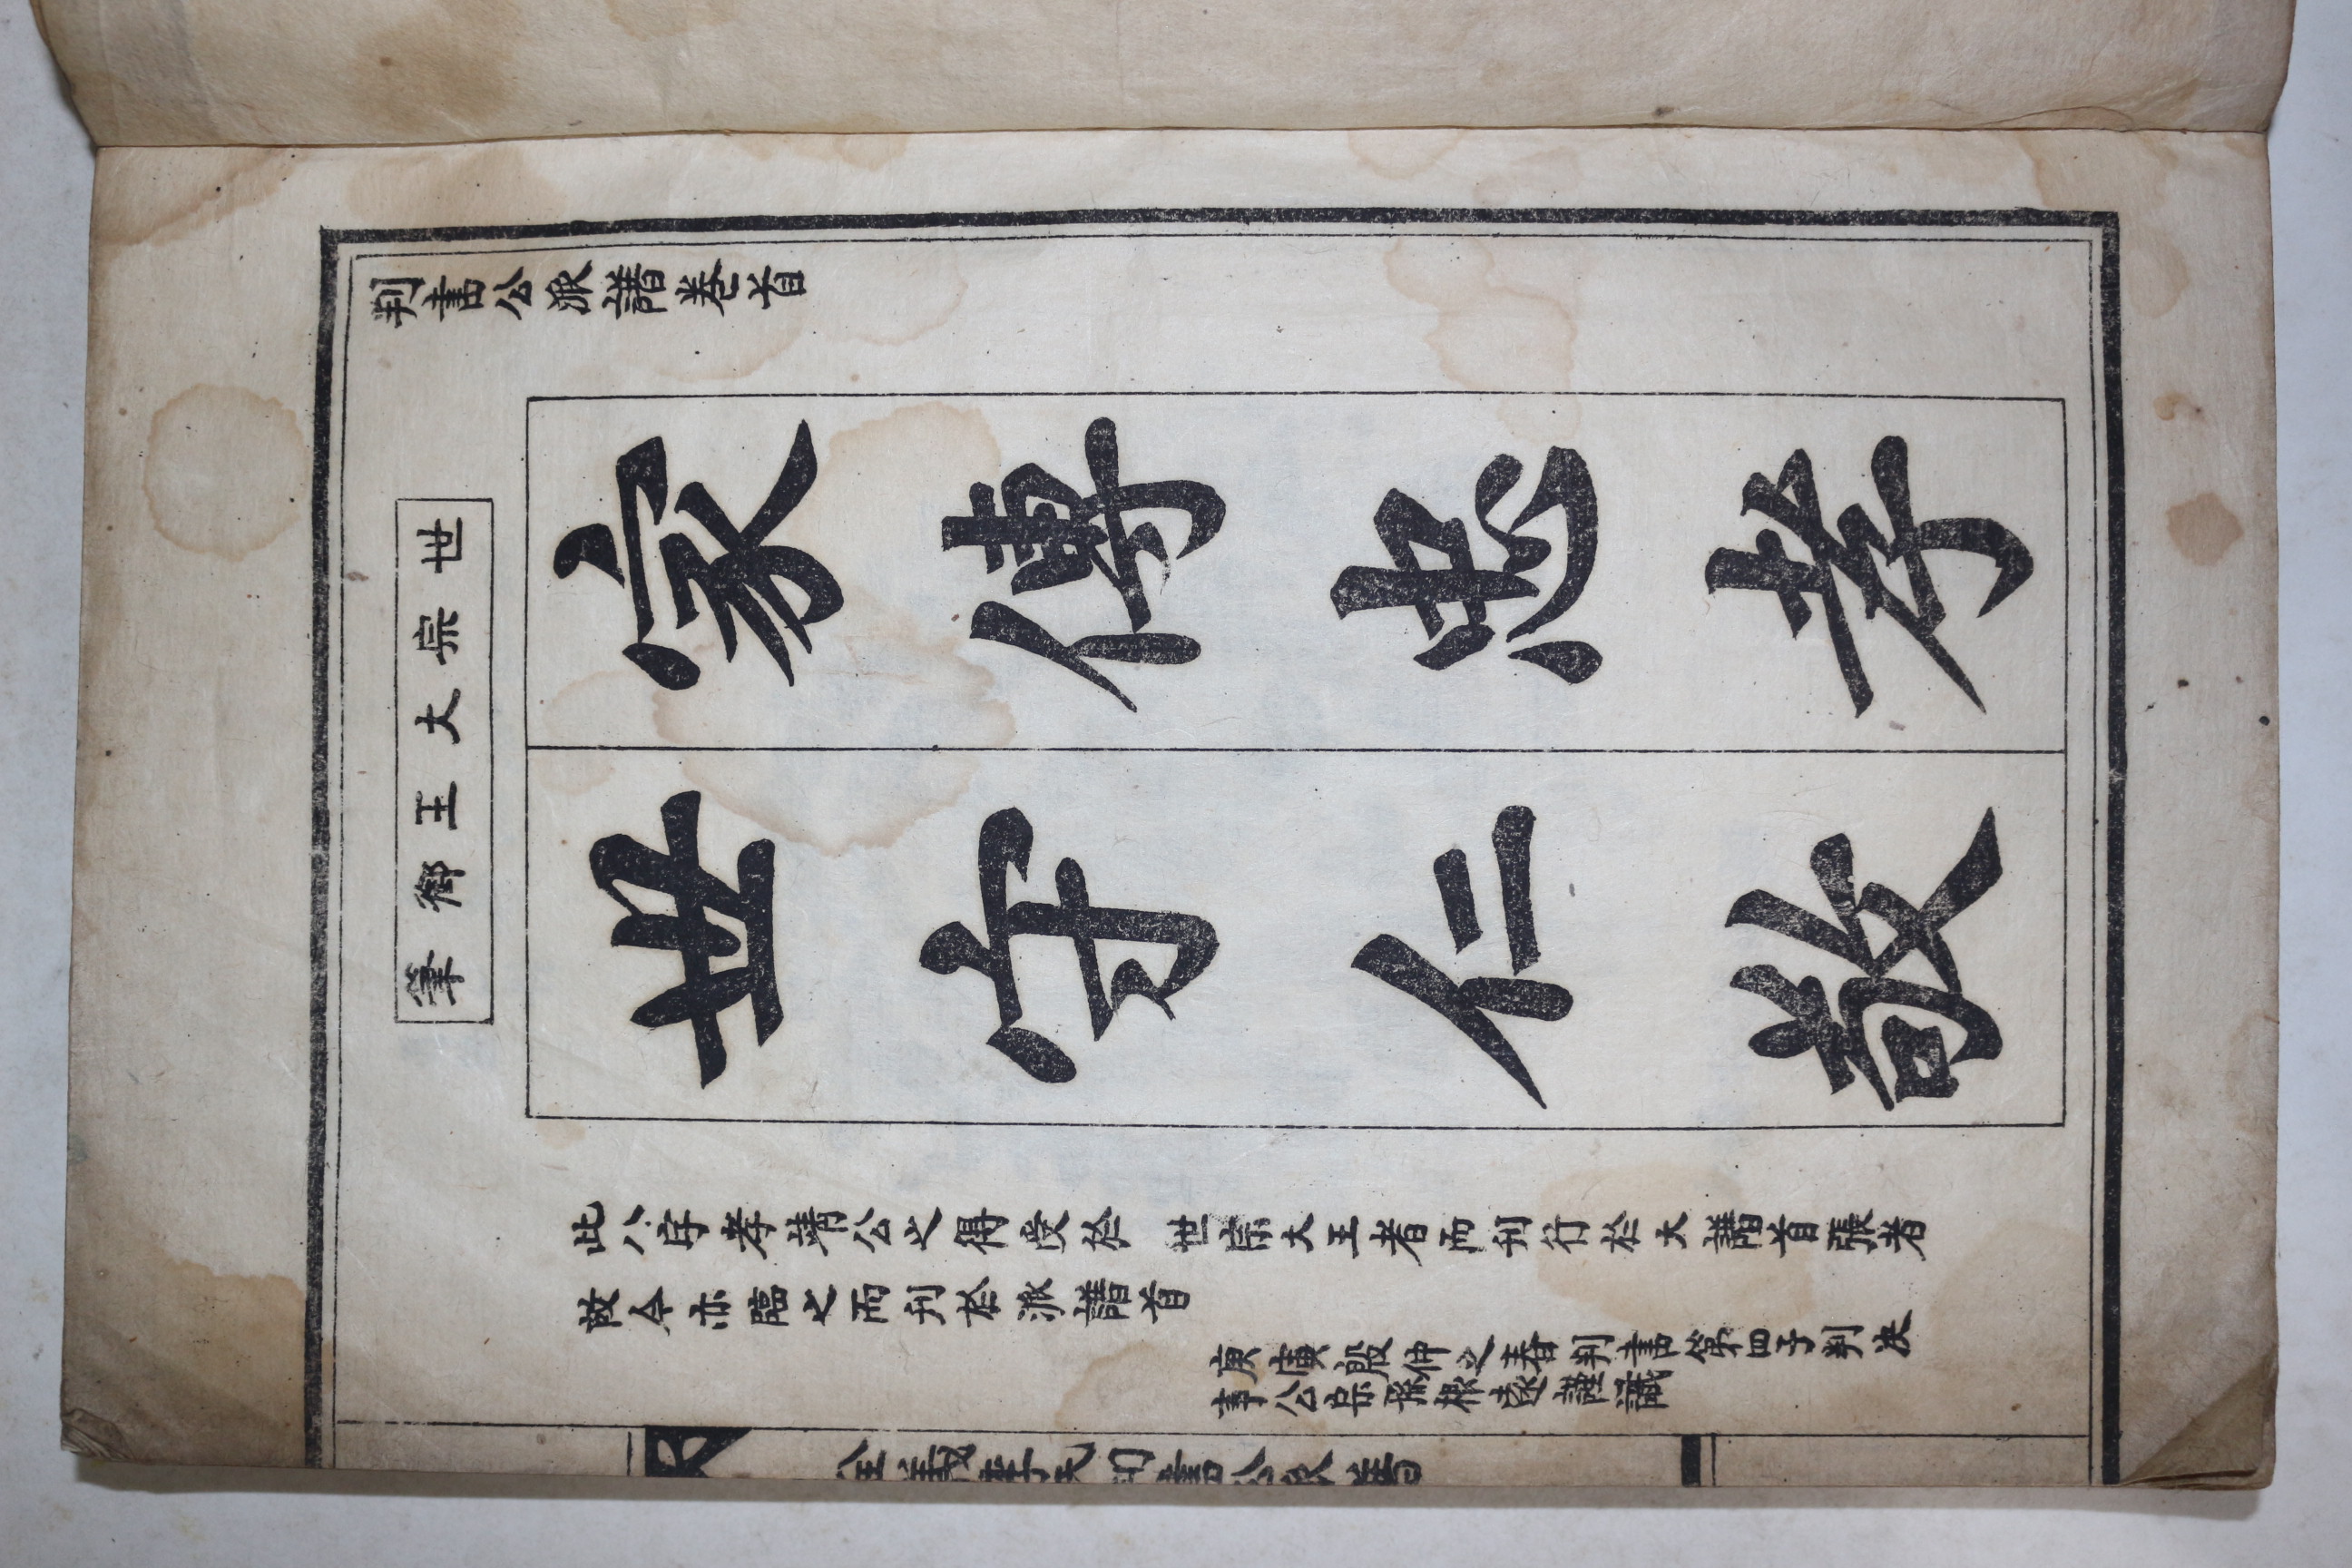 判書公派譜卷首
世宗大王御筆
家傳忠孝
世守仁敬
此八字孝靖公之得受於 世宗大王者而刊行於大譜首張者
故今亦臨之而刊於派譜首
庚寅殷仲之春判書第四子判決
事公宗孫根謹識
全義李氏判書公派譜